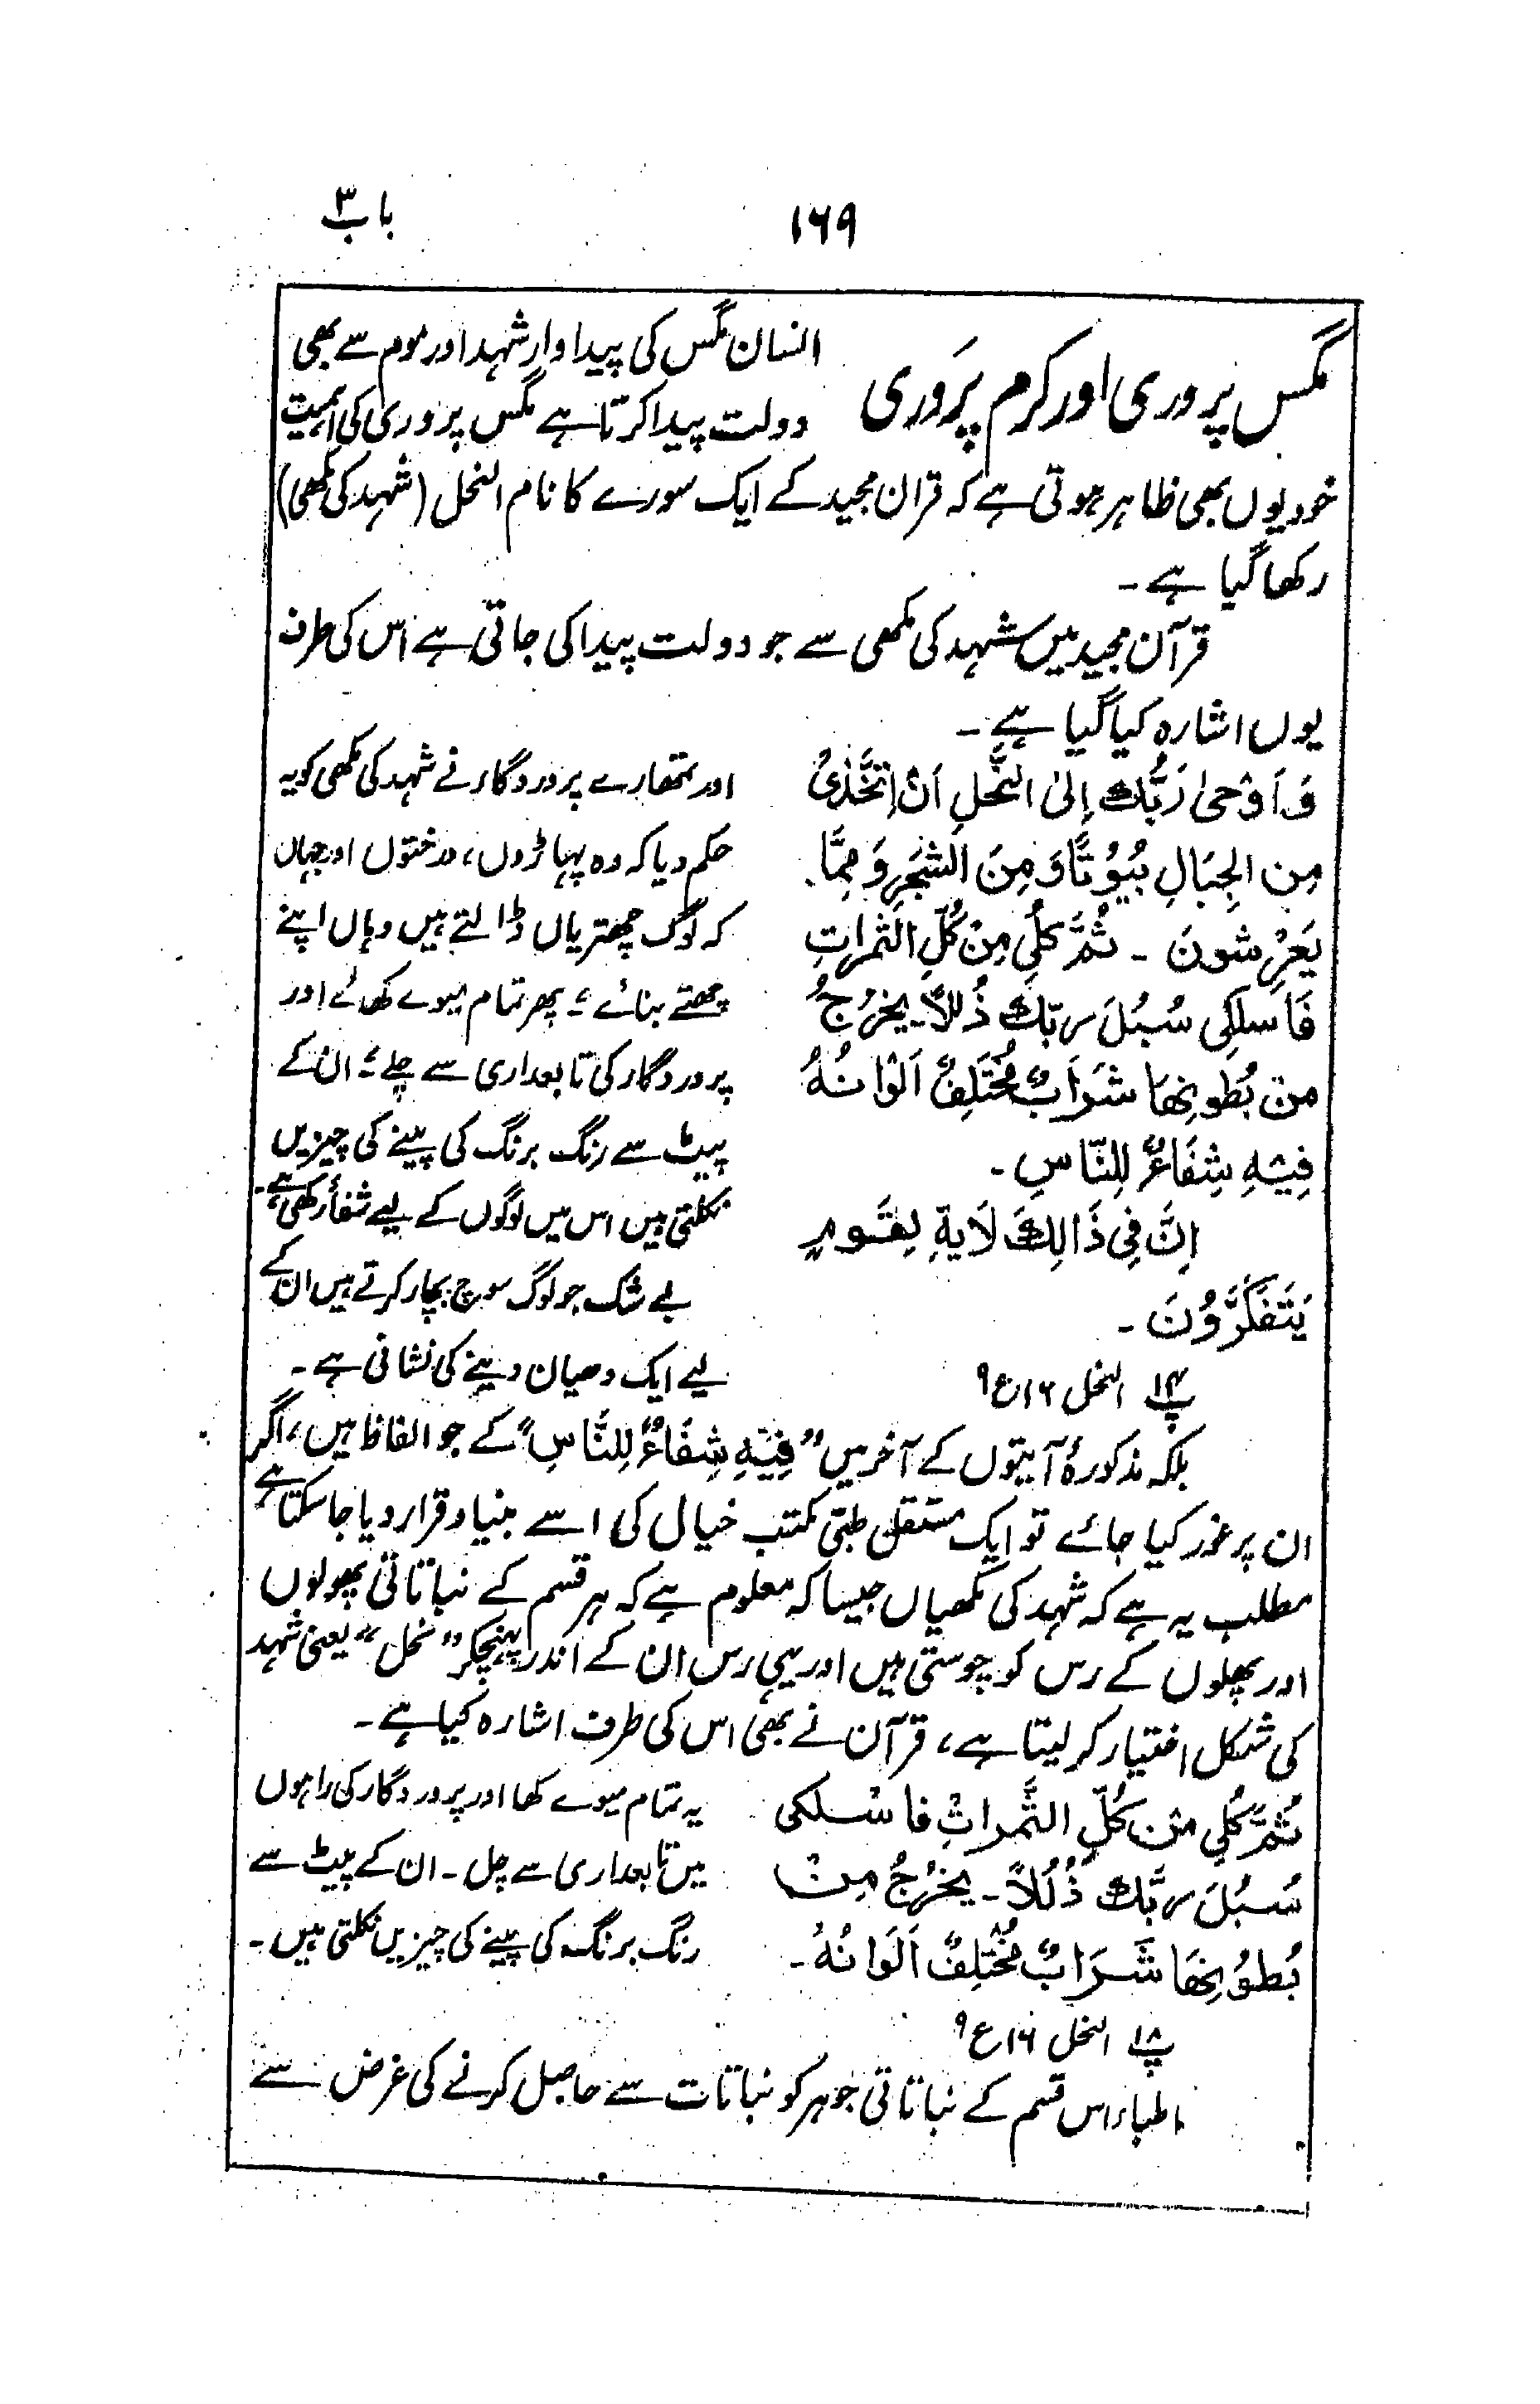 باب ۳
۱۶۹
مگس پروری اور کرم پَروَری
انسان مگس کی پیداوار شہد اور موم سے بھی
دولت پیدا کرتا ہے مگس پروری کی اہمیت
خود یوں بھی ظاہر ہوتی ہے کہ قران مجید کے ایک سورے کا نام النحل (شہد کی مکھی)
رکھا گیا ہے ۔
قرآن مجید میں شہد کی مکھی سے جو دولت پیدا کی جاتی ہے اس کی طرف
یوں اشارہ کیا گیا ہے ۔
وَاَوْحیٰ رَبُّكَ اِلیٰ النَّحلِ اَنْ اِتَّخَذِیْ
مِن الجِبَالِ بُیُوْتًا وَ مِنَ الشَجَرِ وَ مِمَّا
یَعْرِشونَ ۔ ثُمَّ کُلِی مِنْ کُلِّ الثمراتِ
فَاسلکِی سُبُلَ ربّكِ ذُللاً ۔ یَخرُجُ
من بُطونِهَا شَرَابٌ مُختَلِفٌ اَلْوَانُهُ
فِیْهِ شِفَاءٌ لِلنّاسِ ۔
اِنَّ فِی ذَالِكَ لَایةِ لِقَومٍ
یَتَفَکَّرُونَ ۔
پ ۱۴ النحل ۱۶ ع ۹
اور تمھارے پروردگار نے شہد کی مکھی کو یہ
حکم دیا کہ وہ پہاڑوں، درختوں اور جہاں
کہ لوگ چھتریاں ڈالتے ہیں وہاں اپنے
چھتے بنائے ، پھر تمام میوے کھائے اور
پروردگار کی تابعداری سے چلے ، ان کے
پیٹ سے رنگ برنگ کی پینے کی چیزیں
نکلتی ہیں اس میں لوگوں کے لیے شفاء رکھی ہے ۔
بے شک جو لوگ سوچ بچار کرتے ہیں ان کے
لیے ایک دھیان دینے کی نشانی ہے ۔
بلکہ مذکورۂ آیتوں کے آخر میں "فِیْهِ شِفَاءٌ لِلنَّاسِ" کے جو الفاظ ہیں، اگر
ان پر غور کیا جائے تو ایک مستقل طبّی مکتب خیال کی اسے بنیاد قرار دیا جا سکتا ہے
مطلب یہ ہے کہ شہد کی مکھیاں جیسا کہ معلوم ہے کہ ہر قسم کے نباتاتی پھولوں
اور پھلوں کے رس کو چوستی ہیں اور یہی رس ان کے اندر پہنچکر "نحل" یعنی شہد
کی شکل اختیار کر لیتا ہے، قرآن نے بھی اس کی طرف اشارہ کیا ہے ۔
ثُمَّ کُلِی مِنْ کُلِّ الثَّمراتِ فاسْلکی
سُبُلَ ربَّكِ ذُلُلاً ۔ یخرُجُ مِنْ
بُطُونِهَا شَرَابٌ مُخْتَلِفٌ اَلَوَانُهُ ۔
پ ۱۸ النحل ۱۶ ع ۹
یہ تمام میوے کھا اور پروردگار کی راہوں
میں تابعداری سے چل ۔ ان کے پیٹ سے
رنگ برنگ کی پینے کی چیزیں نکلتی ہیں ۔
اطباء اس قسم کے نباتاتی جوہر کو نباتات سے حاصل کرنے کی غرض سے